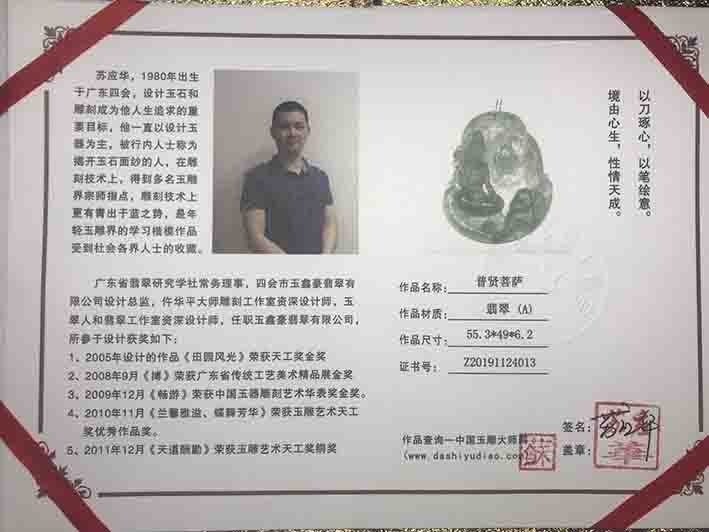 苏应华，1980年出生
于广东四会，设计玉石和
雕刻成为他人生追求的重
要目标，他一直以设计玉
器为主，被行内人士称为
揭开玉石面纱的人，在雕
刻技术上，得到多名玉雕
界宗师指点，雕刻技术上
更有青出于蓝之势，是年
轻玉雕界的学习楷模作品
受到社会各界人士的收藏。
广东省翡翠研究学社常务理事，四会市玉鑫豪翡翠有
限公司设计总监，仵华平大师雕刻工作室资深设计师，玉
翠人和翡翠工作室资深设计师，任职玉鑫豪翡翠有限公司，
所参于设计获奖如下：
1、2005年设计的作品《田园风光》荣获天工奖金奖
2、2008年9月《博》荣获广东省传统工艺美术精品展金奖
3、2009年12月《畅游》荣获中国玉器雕刻艺术华表奖金奖。
4、2010年11月《兰馨雅溢、蝶舞芳华》荣获玉雕艺术天工
奖优秀作品奖。
5、2011年12月《天道酬勤》荣获玉雕艺术天工奖铜奖
以刀琢心，以笔绘意。
境由心生，性情天成。
作品名称：普贤菩萨
作品材质：翡翠（A）
作品尺寸：55.3*49*6.2
证书号：Z20191124013
作品查询—中国玉雕大师网
(www.dashiyudiao.com)
签名：
盖章：